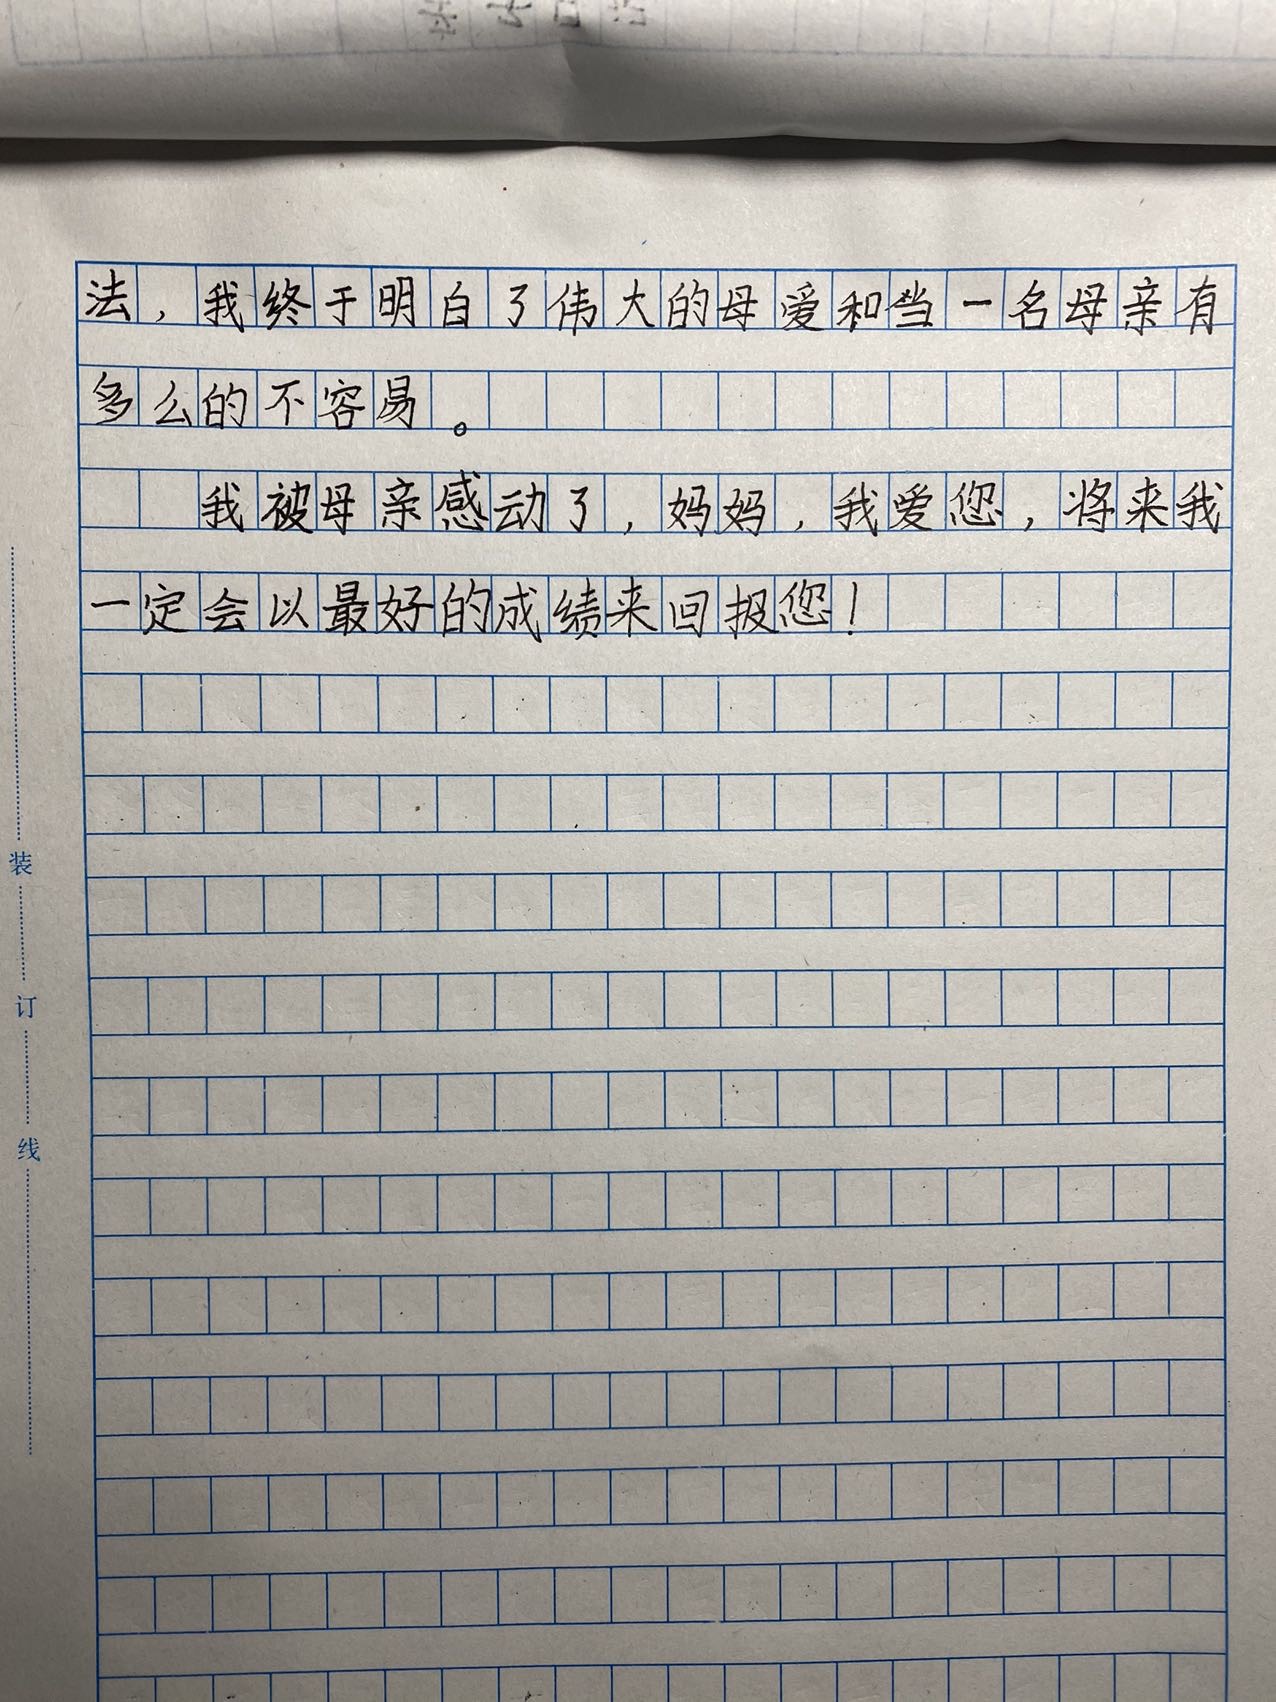 法，我终于明白了伟大的母爱和当一名母亲有
多么的不容易。
我被母亲感动了，妈妈，我爱您，将来我
一定会以最好的成绩来回报您！
装
订
线